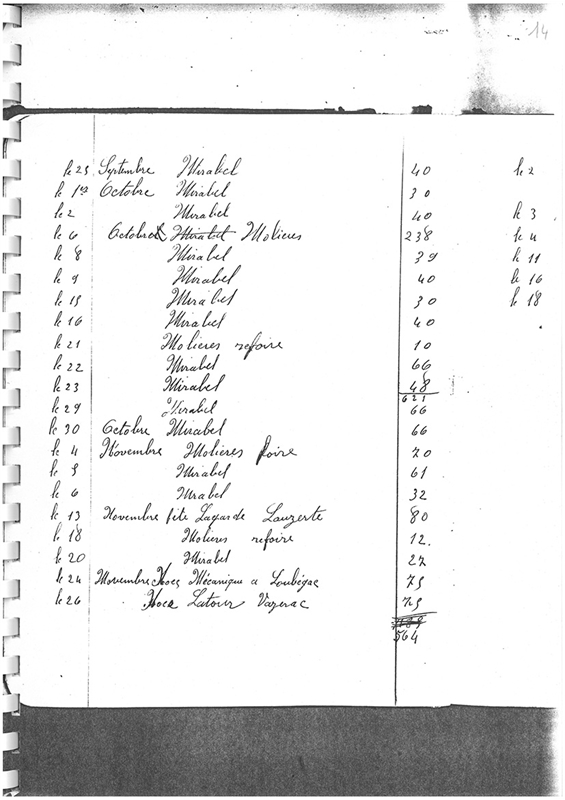 14
le 25 Septembre Mirabel 40 le 2
le 1er Octobre Mirabel 30
le 2 Mirabel 40 le 3
le 6 Octobre Mirabel Molieres 238 le 4
le 8 Mirabel 39 le 11
le 9 Mirabel 40 le 16
le 15 Mirabel 30 le 18
le 16 Mirabel 40
le 21 Molieres refoire 10
le 22 Mirabel 66
le 23 Mirabel 48
621
le 29 Mirabel 66
le 30 Octobre Mirabel 66
le 4 Novembre Molieres foire 70
le 5 Mirabel 61
le 6 Mirabel 32
le 13 Novembre fête Lagarde Lauzerte 80
le 18 Molieres refoire 12
le 20 Mirabel 27
le 24 Novembre Noce Mécanique a Loubégac 75
le 26 Noce Latour Vazerac 75
564